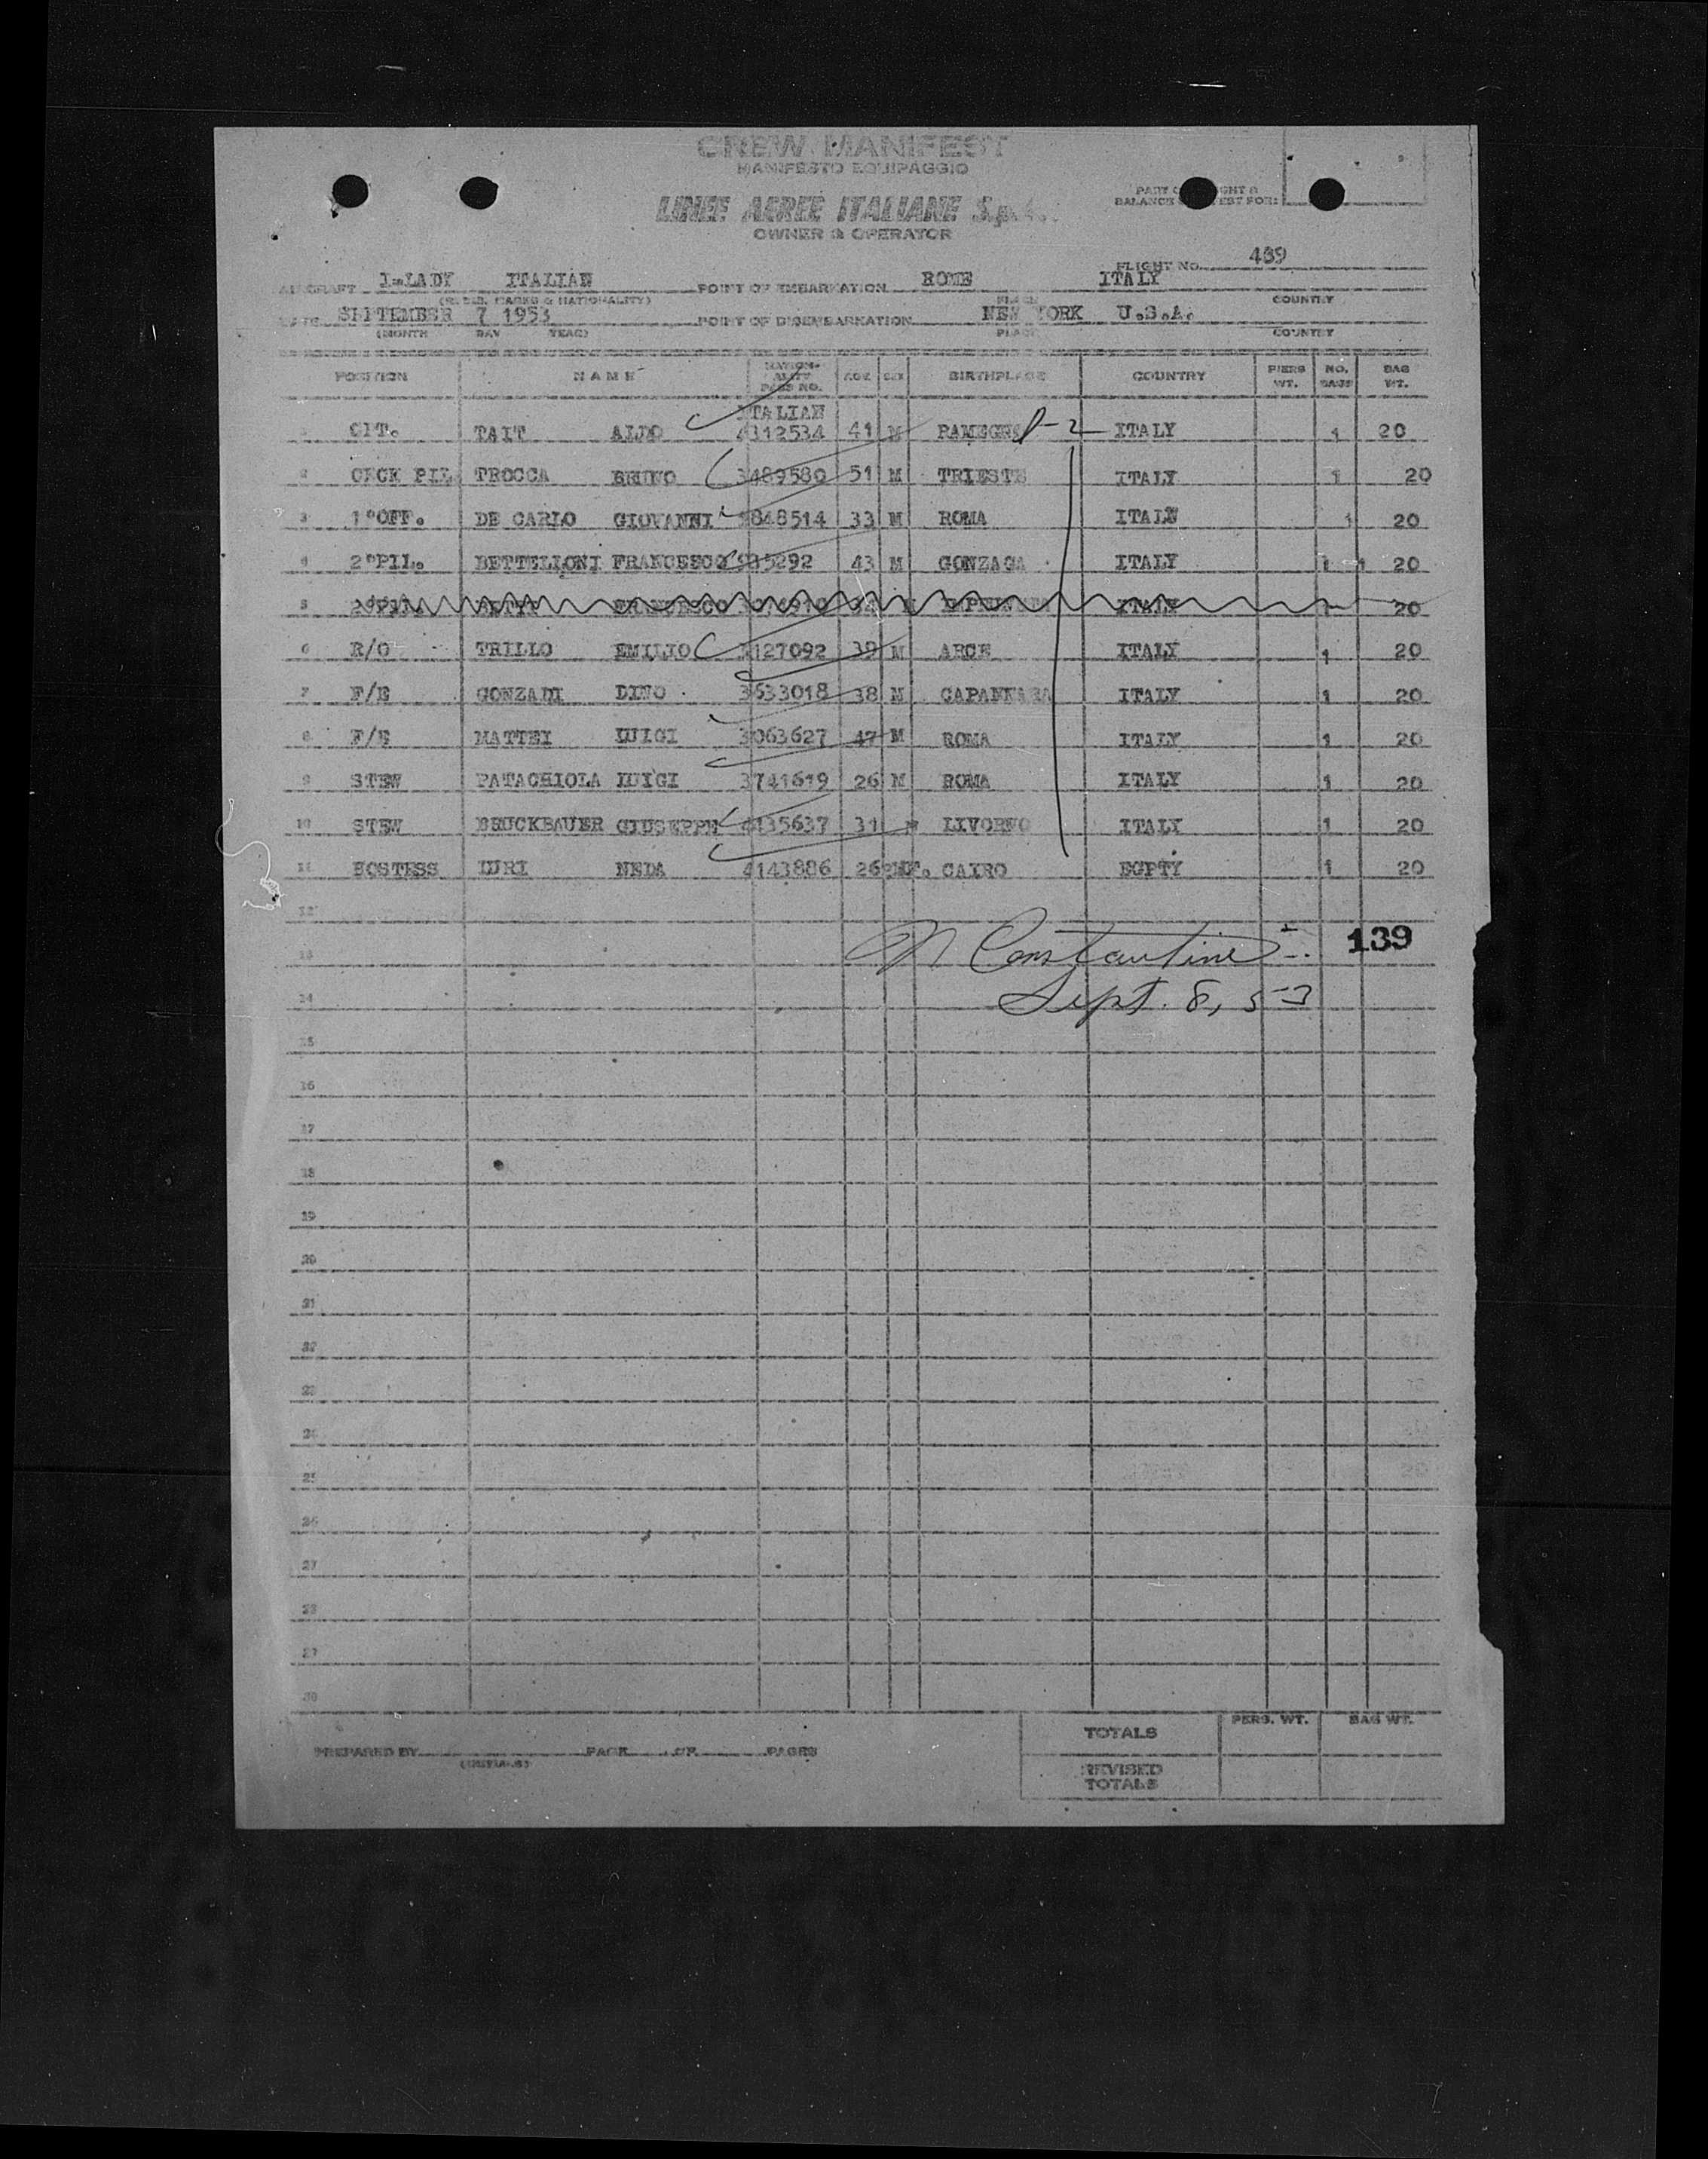 CREW MANIFEST
MANIFESTO EQUIPAGGIO
LINEE AEREE ITALIANE S.p.
OWNER & OPERATOR
PART BALANCE FOR:
FLIGHT No. 489
AIRCRAFT I-LADY ITALIAN POINT OF EMBARKATION ROME ITALY
MARKS & NATIONALITY) PLACE COUNTRY
DATE SEPTEMBER 7 1953 POINT OF DISEMBARKATION NEW YORK U.S.A.
(MONTH DAY YEAR) PLACE COUNTRY
POSITION NAME NATION-ALITY PASS NO. AGE SEX BIRTHPLACE COUNTRY PERS WT. NO. BAGS BAG WT.
ITALIAN
1 CPT. TAIT ALDO 4312534 41 M P-2 ITALY 1 20
2 CHCK PIL TROCCA BRUNO 3489580 51 M TRIESTE ITALY 1 20
3 1°OFF. DE CARLO GIOVANNI 848514 33 M ROMA ITALY 1 20
4 2°PIL. BETTELLONI FRANCESCO 5292 43 M GONZAGA ITALY 1 20
5 2°PIL FRANCESCO ITALY 1 20
6 R/O TRILLO EMILIO 127092 39 M ARCE ITALY 1 20
7 F/E GONZADI DINO 3633018 38 M ITALY 1 20
8 F/E MATTEI LUIGI 3063627 47 M ROMA ITALY 1 20
9 STEW PATACHIOLA LUIGI 3741619 26 M ROMA ITALY 1 20
10 STEW BRUCKBAUER GIUSEPPE 4135637 31 M LIVORNO ITALY 1 20
11 HOSTESS LURI NEDA 4143886 26 F. CAIRO EGPTY 1 20
12
13 N Constantine 139
14 Sept. 8, 53
15
16
17
18
19
20
21
22
23
24
25
26
27
28
29
30
TOTALS PERS. WT. BAG WT.
PREPARED BY PAGE OF PAGES
(INITIALS)
REVISED
TOTALS